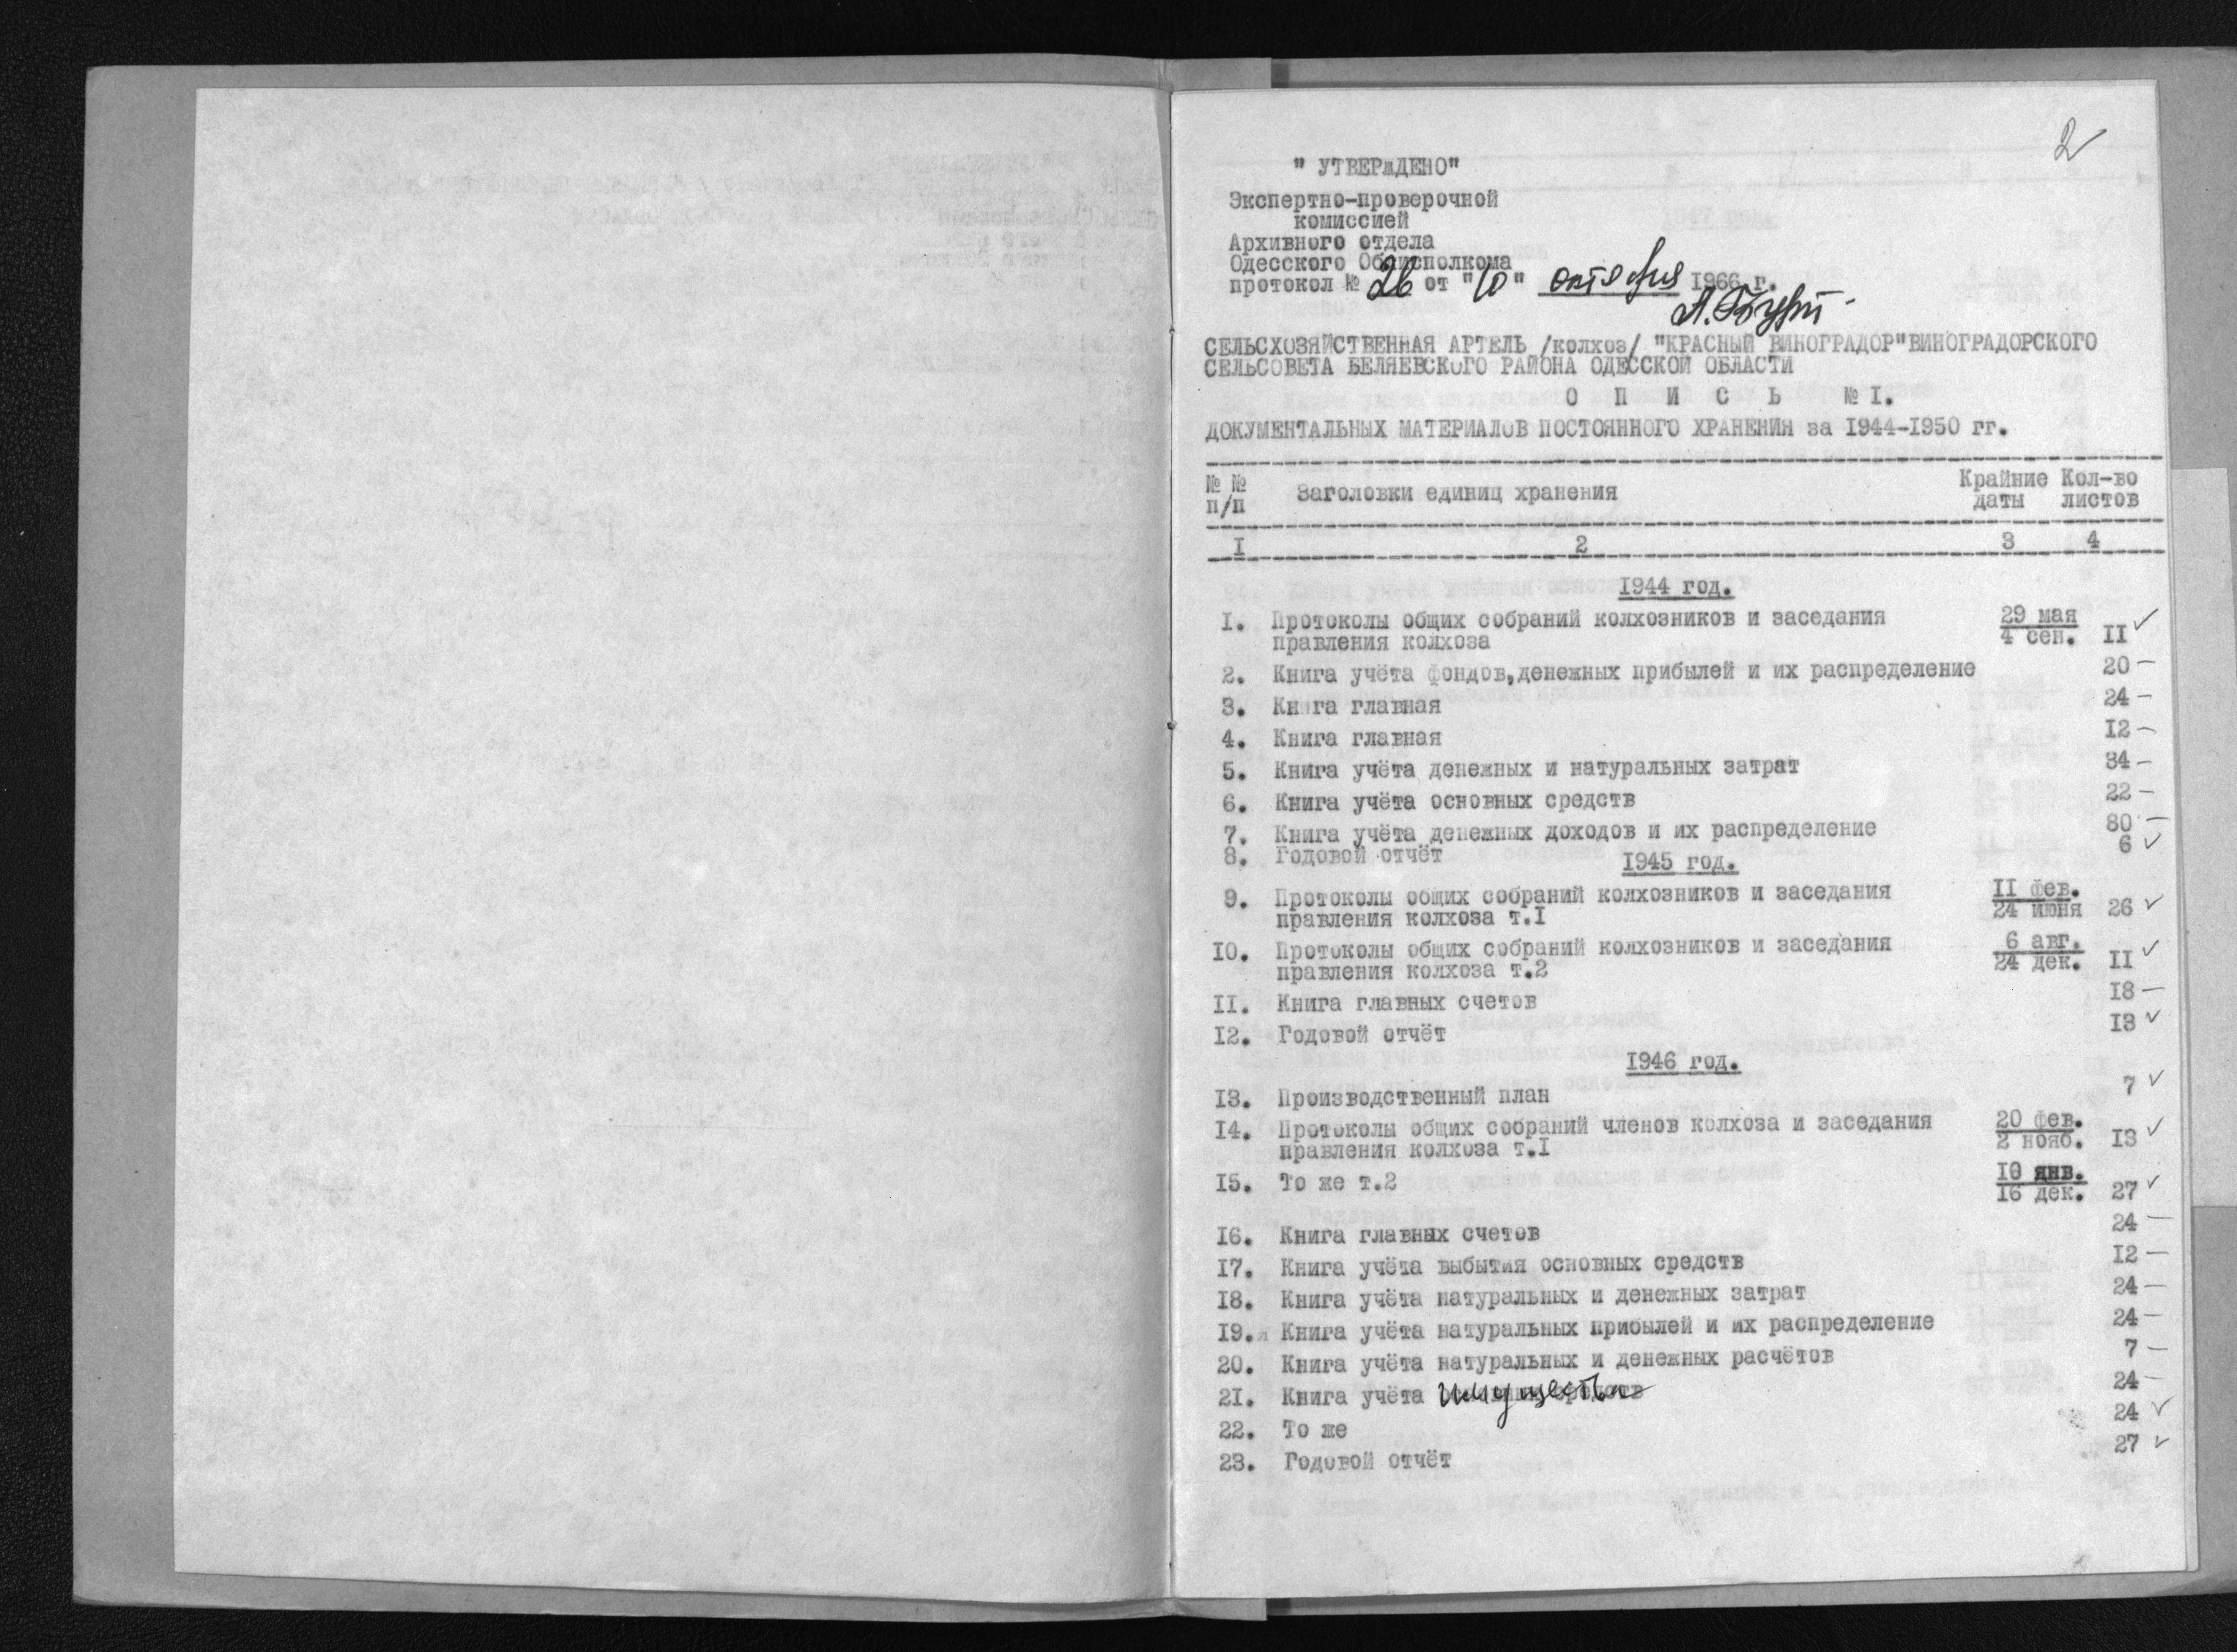 2
" УТВЕРЖДЕНО"
Экспертно-проверочной
комиссией
Архивного отдела
Одесского Облисполкома
протокол № 26 от "10" октября 1966 г.
СЕЛЬСХОЗЯЙСТВЕННАЯ АРТЕЛЬ /колхоз/ "КРАСНЫЙ ВИНОГРАДОР"ВИНОГРАДОРСКОГО
СЕЛЬСОВЕТА БЕЛЯЕВСКОГО РАЙОНА ОДЕССКОЙ ОБЛАСТИ
О П И С Ь № I.
ДОКУМЕНТАЛЬНЫХ МАТЕРИАЛОВ ПОСТОЯННОГО ХРАНЕНИЯ за I944-I950 гг.
№ № Заголовки единиц хранения Крайние Кол-во
п/п даты листов
I 2 3 4
I944 год.
I. Протоколы общих собраний колхозников и заседания 29 мая
правления колхоза 4 сен. II ✓
2. Книга учёта фондов,денежных прибылей и их распределение 20 —
3. Книга главная 24 —
4. Книга главная I2 —
5. Книга учёта денежных и натуральных затрат 34 —
6. Книга учёта основных средств 22 —
7. Книга учёта денежных доходов и их распределение 80 —
8. Годовой отчёт 6 ✓
I945 год.
9. Протоколы общих собраний колхозников и заседания II фев.
правления колхоза т.I 24 июня 26 ✓
I0. Протоколы общих собраний колхозников и заседания 6 авг.
правления колхоза т.2 24 дек. II ✓
II. Книга главных счетов I8 —
I2. Годовой отчёт I3 ✓
I946 год.
I3. Производственный план 7 ✓
I4. Протоколы общих собраний членов колхоза и заседания 20 фев.
правления колхоза т.I 2 нояб. I3 ✓
I5. То же т.2 I0 янв.
I6 дек. 27 ✓
I6. Книга главных счетов 24 —
I7. Книга учёта выбытия основных средств I2 —
I8. Книга учёта натуральных и денежных затрат 24 —
I9. Книга учёта натуральных прибылей и их распределение 24 —
20. Книга учёта натуральных и денежных расчётов 7 —
21. Книга учёта имущества 24 —
22. То же 24 ✓
23. Годовой отчёт 27 ✓